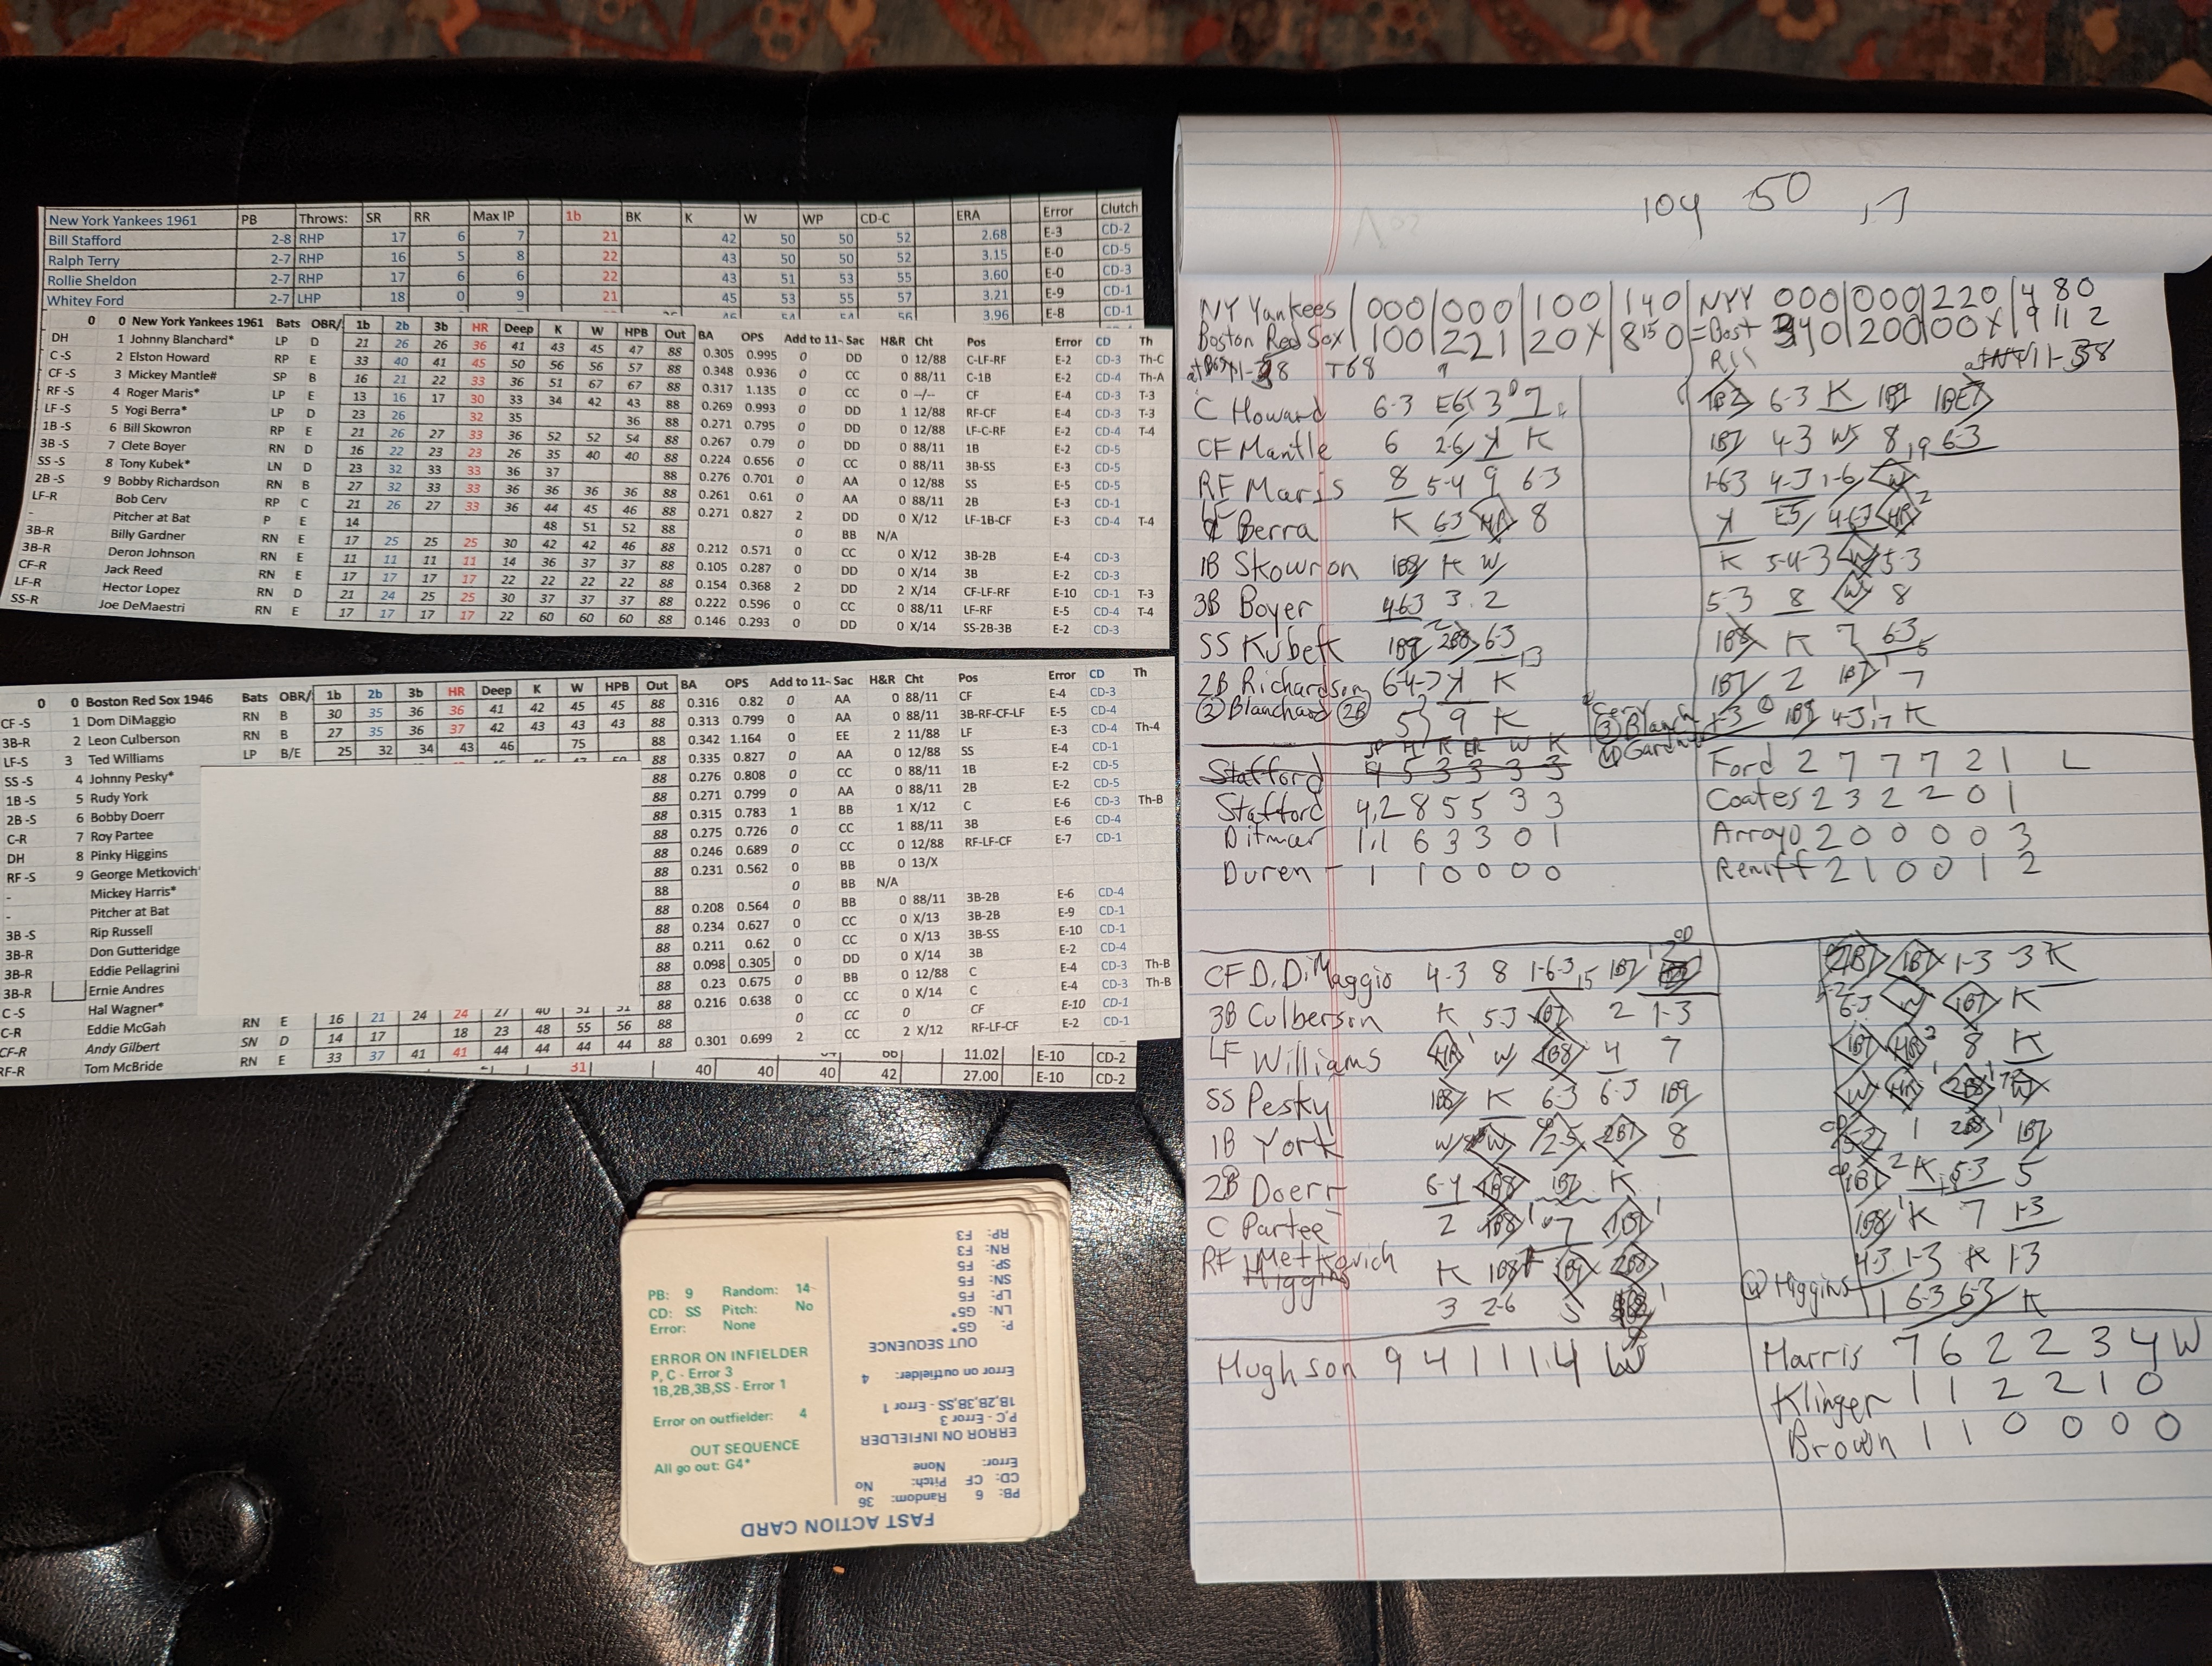 New York Yankees 1961 PB Throws: SR RR Max IP 1b BK K W WP CD-C ERA Error Clutch
Bill Stafford 2-8 RHP 17 6 7 21 42 50 50 52 2.68 E-3 CD-2
Ralph Terry 2-7 RHP 16 5 8 22 43 50 50 52 3.15 E-0 CD-5
Rollie Sheldon 2-7 RHP 17 6 6 22 43 51 53 55 3.60 E-0 CD-3
Whitey Ford 2-7 LHP 18 0 9 21 45 53 55 57 3.21 E-9 CD-1
3.96 E-8 CD-1
0 0 New York Yankees 1961 Bats OBR/ 1b 2b 3b HR Deep K W HPB Out BA OPS Add to 11- Sac H&R Cht Pos Error CD Th
DH 1 Johnny Blanchard* LP D 21 26 26 36 41 43 45 47 88 0.305 0.995 0 DD 0 12/88 C-LF-RF E-2 CD-3 Th-C
C -S 2 Elston Howard RP E 33 40 41 45 50 56 56 57 88 0.348 0.936 0 DD 0 88/11 C-1B E-2 CD-4 Th-A
CF -S 3 Mickey Mantle# SP B 16 21 22 33 36 51 67 67 88 0.317 1.135 0 CC 0 --/-- CF E-4 CD-3 T-3
RF -S 4 Roger Maris* LP E 13 16 17 30 33 34 42 43 88 0.269 0.993 0 DD 1 12/88 RF-CF E-4 CD-3 T-3
LF -S 5 Yogi Berra* LP D 23 26 32 35 36 88 0.271 0.795 0 DD 0 12/88 LF-C-RF E-2 CD-4 T-4
1B -S 6 Bill Skowron RP E 21 26 27 33 36 52 52 54 88 0.267 0.79 0 DD 0 88/11 1B E-2 CD-5
3B -S 7 Clete Boyer RN D 16 22 23 23 26 35 40 40 88 0.224 0.656 0 CC 0 88/11 3B-SS E-3 CD-5
SS -S 8 Tony Kubek* LN D 23 32 33 33 36 37 88 0.276 0.701 0 AA 0 12/88 SS E-5 CD-5
2B -S 9 Bobby Richardson RN B 27 32 33 33 36 36 36 36 88 0.261 0.61 0 AA 0 88/11 2B E-3 CD-1
LF-R Bob Cerv RP C 21 26 27 33 36 44 45 46 88 0.271 0.827 2 DD 0 X/12 LF-1B-CF E-3 CD-4 T-4
- Pitcher at Bat P E 14 48 51 52 88 0 BB N/A
3B-R Billy Gardner RN E 17 25 25 25 30 42 42 46 88 0.212 0.571 0 CC 0 X/12 3B-2B E-4 CD-3
3B-R Deron Johnson RN E 11 11 11 11 14 36 37 37 88 0.105 0.287 0 DD 0 X/14 3B E-2 CD-3
CF-R Jack Reed RN E 17 17 17 17 22 22 22 22 88 0.154 0.368 2 DD 2 X/14 CF-LF-RF E-10 CD-1 T-3
LF-R Hector Lopez RN D 21 24 25 25 30 37 37 37 88 0.222 0.596 0 CC 0 88/11 LF-RF E-5 CD-4 T-4
SS-R Joe DeMaestri RN E 17 17 17 17 22 60 60 60 88 0.146 0.293 0 DD 0 X/14 SS-2B-3B E-2 CD-3
0 0 Boston Red Sox 1946 Bats OBR/ 1b 2b 3b HR Deep K W HPB Out BA OPS Add to 11- Sac H&R Cht Pos Error CD Th
CF -S 1 Dom DiMaggio RN B 30 35 36 36 41 42 45 45 88 0.316 0.82 0 AA 0 88/11 CF E-4 CD-3
3B-R 2 Leon Culberson RN B 27 35 36 37 42 43 43 43 88 0.313 0.799 0 AA 0 88/11 3B-RF-CF-LF E-5 CD-4
LF-S 3 Ted Williams LP B/E 25 32 34 43 46 75 88 0.342 1.164 0 EE 2 11/88 LF E-3 CD-4 Th-4
SS -S 4 Johnny Pesky* 88 0.335 0.827 0 AA 0 12/88 SS E-4 CD-1
1B -S 5 Rudy York 88 0.276 0.808 0 CC 0 88/11 1B E-2 CD-5
2B -S 6 Bobby Doerr 88 0.271 0.799 0 AA 0 88/11 2B E-2 CD-5
C-R 7 Roy Partee 88 0.315 0.783 1 BB 1 X/12 C E-6 CD-3 Th-B
DH 8 Pinky Higgins 88 0.275 0.726 0 CC 1 88/11 3B E-6 CD-4
RF -S 9 George Metkovich* 88 0.246 0.689 0 CC 0 12/88 RF-LF-CF E-7 CD-1
- Mickey Harris* 88 0.231 0.562 0 BB 0 13/X
- Pitcher at Bat 88 0 BB N/A
3B -S Rip Russell 88 0.208 0.564 0 BB 0 88/11 3B-2B E-6 CD-4
3B-R Don Gutteridge 88 0.234 0.627 0 CC 0 X/13 3B-2B E-9 CD-1
3B-R Eddie Pellagrini 88 0.211 0.62 0 CC 0 X/13 3B-SS E-10 CD-1
3B-R Ernie Andres 88 0.098 0.305 0 DD 0 X/14 3B E-2 CD-4
C -S Hal Wagner* 88 0.23 0.675 0 BB 0 12/88 C E-4 CD-3 Th-B
C-R Eddie McGah RN E 16 21 24 24 27 88 0.216 0.638 0 CC 0 X/14 C E-4 CD-3 Th-B
CF-R Andy Gilbert SN D 14 17 18 23 48 55 56 88 0 CC 0 CF E-10 CD-1
RF-R Tom McBride RN E 33 37 41 41 44 44 44 44 88 0.301 0.699 2 CC 2 X/12 RF-LF-CF E-2 CD-1
11.02 E-10 CD-2
31 40 40 40 42 27.00 E-10 CD-2
PB: 9 Random: 14
CD: SS Pitch: No
Error: None
ERROR ON INFIELDER
P, C - Error 3
1B,2B,3B,SS - Error 1
Error on outfielder: 4
OUT SEQUENCE
All go out: G4*
FAST ACTION CARD
PB: 6 Random: 36
CD: CF Pitch: No
Error: None
ERROR ON INFIELDER
P,C - Error 3
1B,2B,3B,SS - Error 1
Error on outfielder: 4
OUT SEQUENCE
P: G5*
LN: G5*
LP: F5
SN: F5
SP: F5
RN: F3
RP: F3
104 50 ,7
NY Yankees 000 000 100 140 NYY 000 000 220 4 80
Boston Red Sox 100 221 20X 8 15 0 = Bost 340 20000X 9 11 2
C Howard 6-3 E6 3 7 6-3 K 1B9
CF Mantle 6 2-6 K K 1B7 4-3 W 8 6-3
RF Maris 8 5-4 9 6-3 1-63 4-3 1-6 W
Berra K 63 HR 8 K E5 4-63 HR
1B Skowron 1B8 K W K 5-4-3 W 5-3
3B Boyer 463 3 2 5-3 8 W 8
SS Kubek 1B9 2B8 6-3 1B8 K 7 6-3
2B Richardson 6-4-3 K K 1B7 2 1B7 7
Blanchard 5 9 K Blanch 1B8 4-3 K
Gardner
IP H R ER W K
Stafford 4 5 3 3 3 3 Ford 2 7 7 7 2 1 L
Stafford 4,2 8 5 5 3 3 Coates 2 3 2 2 0 1
Ditmar 1,1 6 3 3 0 1 Arroyo 2 0 0 0 0 3
Duren 1 1 0 0 0 0 Reniff 2 1 0 0 1 2
CF D. DiMaggio 4-3 8 1-6-3 1B7 1B7 1-3 3 K
3B Culberson K 5-3 1B7 2 1-3 6-3 W 1B7 K
LF Williams HR W 1B8 4 7 1B7 HR 8 K
SS Pesky 1B8 K 6-3 6-3 1B9 W HR 2B8 W
1B York W W 2B7 8 1 2B8 1B7
2B Doerr 6-4 1B8 1B7 K 1B7 K 5-3 5
C Partee 2 1B8 7 1B7 1B8 K 7 1-3
RF Metkovich K 1B8 1B9 2B8 4-3 1-3 K 1-3
Higgins 3 2-6 5 Higgins 1 6-3 6-3 K
Hughson 9 4 1 1 1 4 W Harris 7 6 2 2 3 4 W
Klinger 1 1 2 2 1 0
Brown 1 1 0 0 0 0